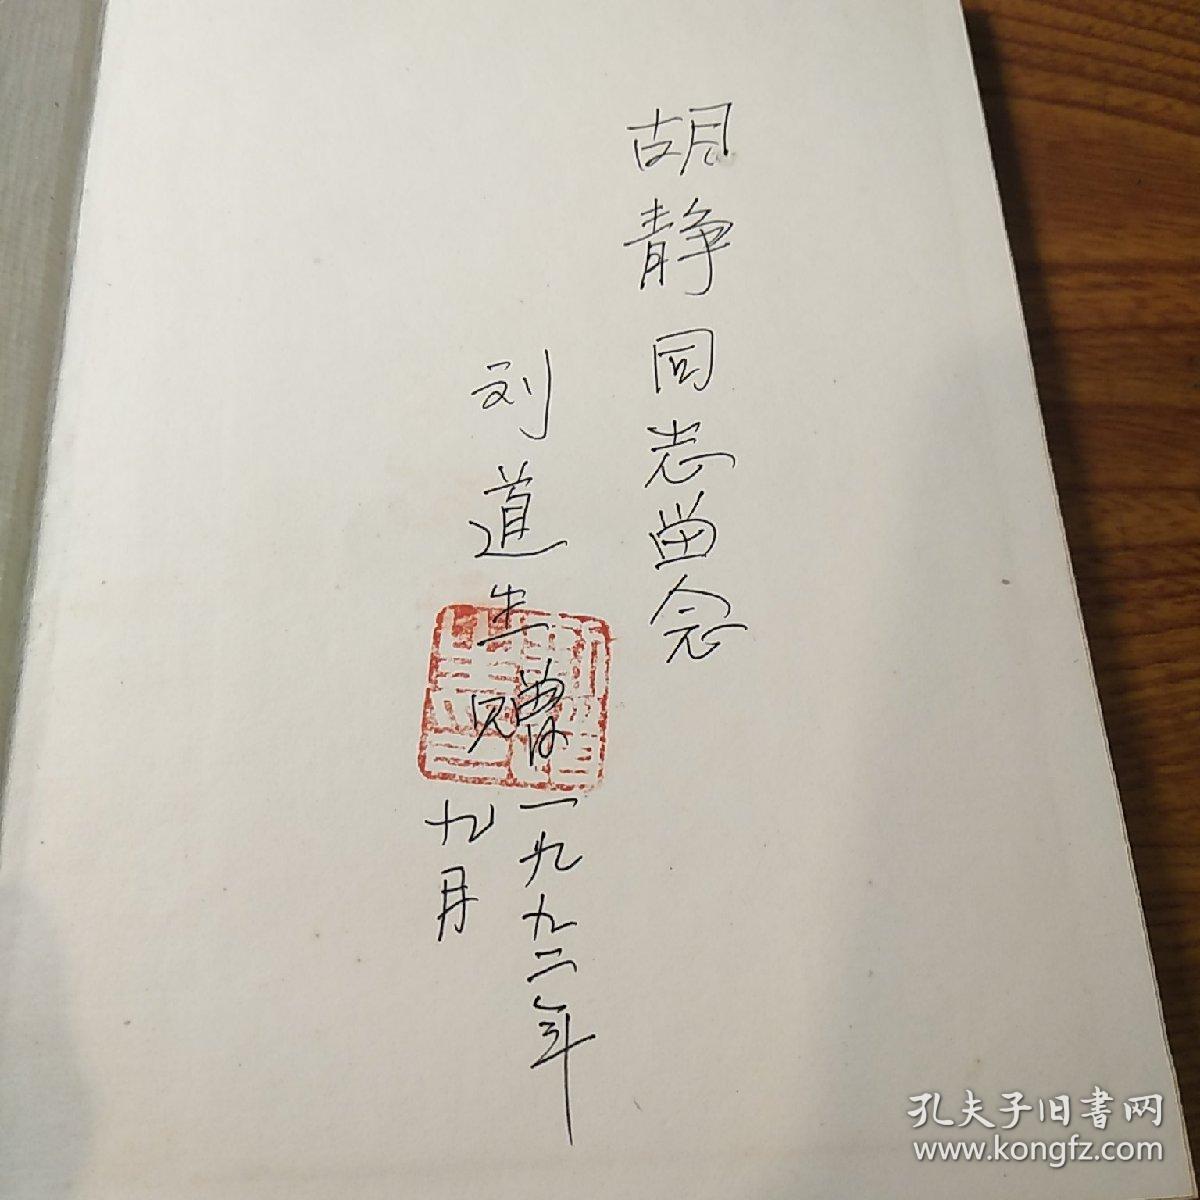 胡静同志留念
刘道生赠
一九九二年
九月
孔夫子旧書网
www.kongfz.com